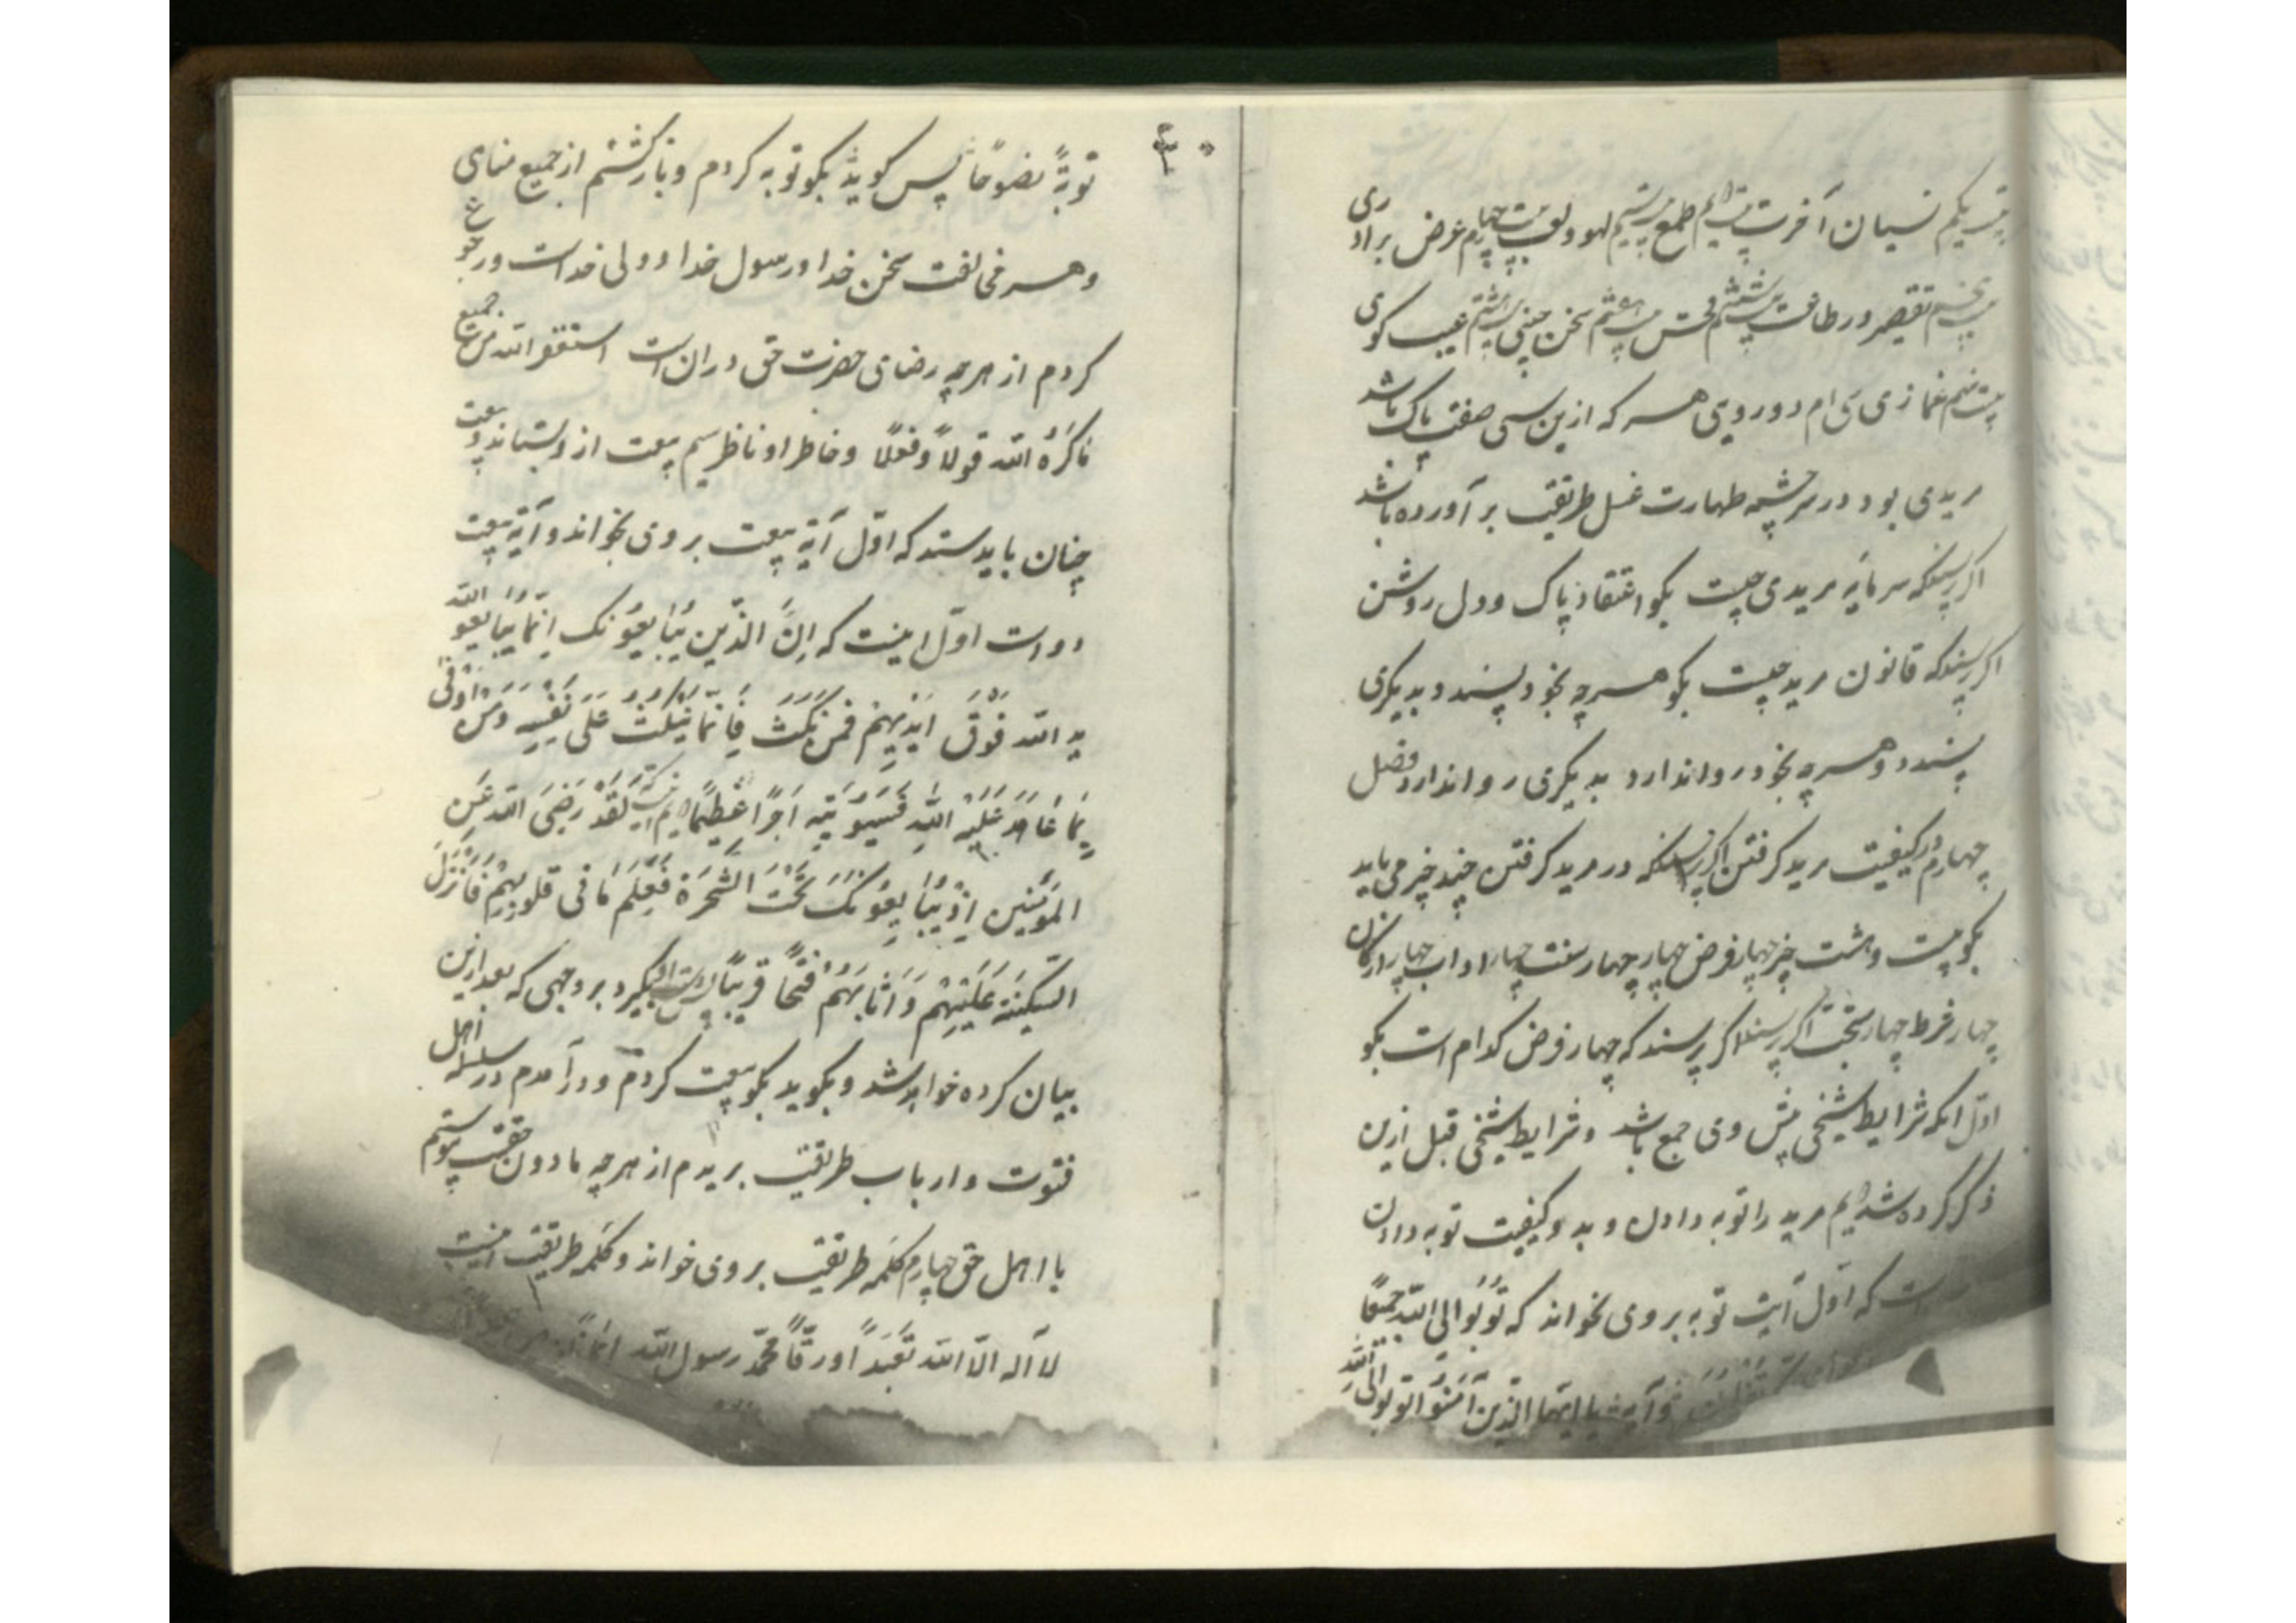 بیست یکم نسیان آخرت بیست دویم طمع بیست سیم لهو و لعب بیست چهارم غرض براداری
بیست پنجم تقصیر در طاعت بیست ششم فحش بیست هفتم سخن چینی بیست هشتم عیب کوی
بیست نهم غمازی سی ام دورویی هر که ازین سی صفت پاک باشد
مریدی بود در سرچشمه طهارت غسل طریقت بر آورده باشد
اگر پرسند که سرمایه مریدی چیست بکو اعتقاد پاک و دل روشن
اگر پرسند که قانون مرید چیست بکو هرچه بخود پسندد بدیکری
پسندد و هرچه بخود روا ندارد بدیکری روا ندارد فصل
چهارم در کیفیت مرید کرفتن اکر پرسند که در مرید کرفتن چند چیز می باید
بکو بیست و هشت چیز چهار فرض چهار چهار سنت چهار اداب چهار ارکان
چهار شرط چهار مستحب اکر پرسند که چهار فرض کدام است بکو
اول انکه شرایط شیخی پیش وی جمع باشد و شرایط شیخی قبل ازین
ذکر کرده شد دویم مرید را توبه دادن و بدو کیفیت توبه دادن
است که اول آیت توبه بروی بخواند که توبوا الی الله جمیعا
و آیت یا ایها الذین آمنوا توبوا الی الله
۳۰
توبةً نصوحًا پس کوید بکو توبه کردم و بازکشتم از جمیع مناهی
و هر مخالفت سخن خدا و رسول خدا و ولی خداست و رجوع
کردم از هرچه رضای حضرت حق دران است استغفر الله من جمیع
ماکره الله قولاً و فعلًا و خاطرا و ناظر سیم بیعت از و بستاند و بیعت
چنان باید ستد که اوّل آیهٔ بیعت بروی بخواند و آیهٔ بیعت
دواست اوّل اینست که اِنَّ الَّذین یُبَایِعُونَک اِنّمَا یُبَایِعُونَ الله
ید الله فَوْقَ اَیْدِیهِمْ فمن نَکَثَ فَاِنَّمَا یَنْکُثُ عَلَی نَفْسِهِ وَمَنْ اَوْفَی
بِمَا عَاهَدَ عَلَیْهُ اللّهَ فَسَیُؤْتِیهِ اَجْرًا عَظِیمًا دویم اینست لَقَدْ رَضِیَ اللّه عَنِ
المؤمنین اِذْ یُبَایِعُونَکَ تَحْتَ الشَّجَرَةِ فَعَلِمَ مَا فی قلوبِهِمْ فَاَنْزَلَ
السَّکِینَةَ عَلَیْهِمْ وَاَثَابَهُمْ فَتْحًا قَرِیبًا پس دست او بگیرد بر وجهی که بعد ازین
بیان کرده خواهد شد و بکوید بکو بیعت کردم و درآمدم در سلسله اهل
فتوت و ارباب طریقت بریدم از هرچه مادون حقست پیوستم
با اهل حق چهارم کلمه طریقت بروی خواند و کلمه طریقت اینست
لا آله الّا الله تعبّداً و رقّاً محمّد رسول الله